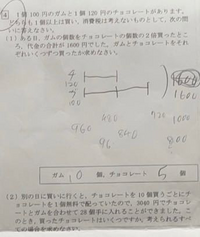 4 1個100円のガムと1個120円のチョコレートがあります。
どちらも1個以上は買い、消費税は考えないものとして、次の問
いに答えなさい。
(1) ある日、ガムの個数をチョコレートの個数の2倍買ったとこ
ろ、代金の合計が1600円でした。ガムとチョコレートをそ
れぞれいくつずつ買ったか求めなさい。
120
100
1600
480
720
1000
960
96
840
ガム 10 個、チョコレート 5 個
(2) 別の日に買いに行くと、チョコレートを10個買うごとにチ
ョコレートを1個無料で配っていたので、3040円でチョコレー
トとガムを合わせて29個手に入れることができました。こ
のとき、買ったチョコレートはいくつですか。考えられるすべ
ての場合を求めなさい。